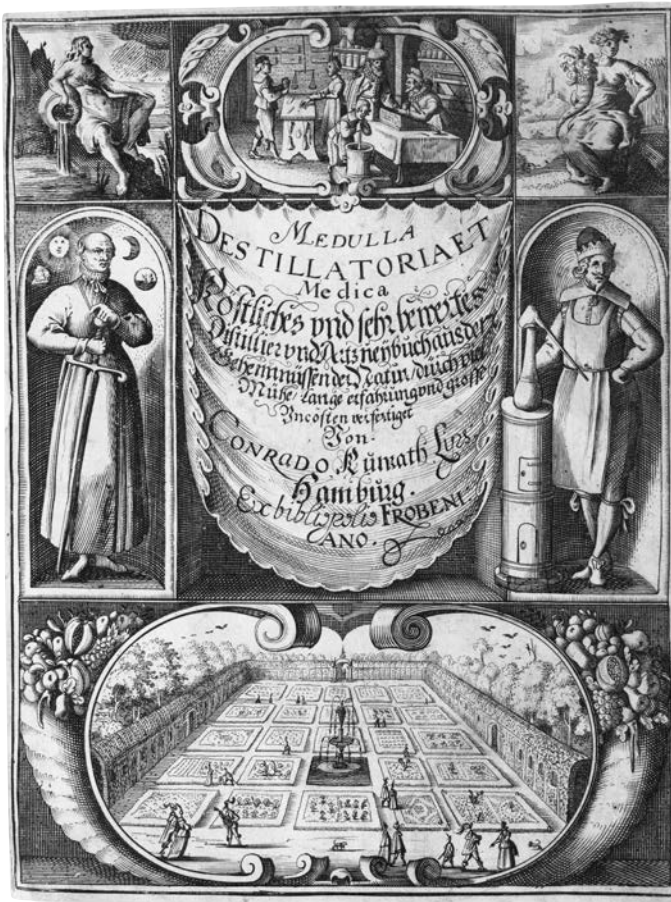 MEDULLA
DESTILLATORIA ET
Medica
Köstliches vnd sehr bewertes
Distilier vnd Artzneybuch aus der
Geheimnüssen der Natur / durch viel
Mühe / Lange erfahrung vnd grosse
Vncosten verfertiget
Von.
CONRADO Kunrath Lips.
Hamburg.
Ex bibliopolio FROBENI
ANO.